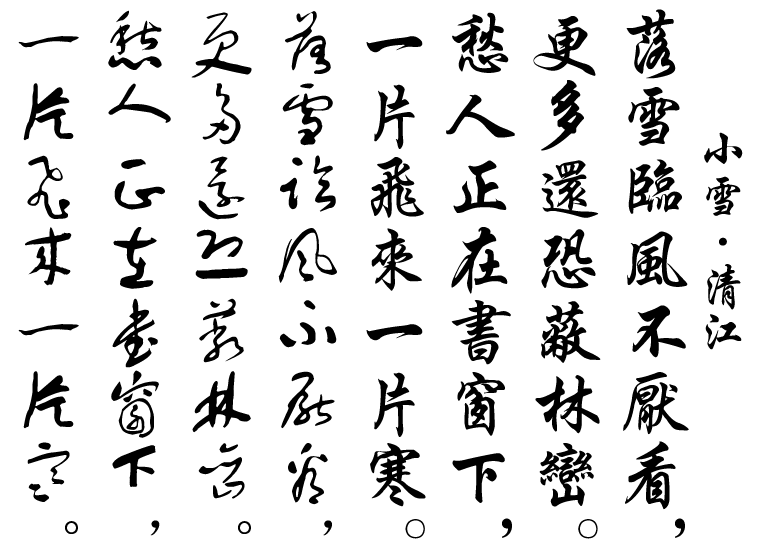 小雪·清江
落雪臨風不厭看，
更多還恐蔽林巒。
愁人正在書窗下，
一片飛來一片寒。
落雪臨風不厭看，
更多還恐蔽林巒。
愁人正在書窗下，
一片飛來一片寒。